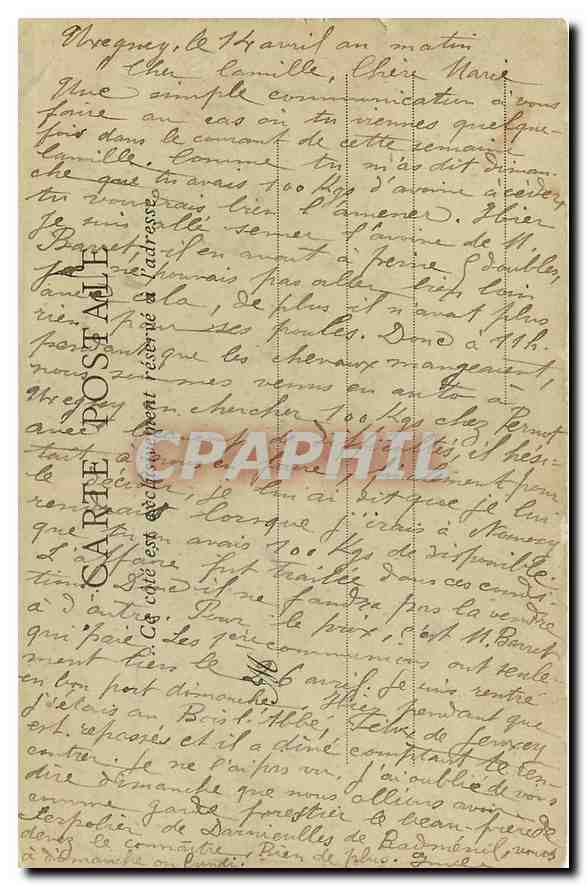 Uxegney, le 14 avril au matin
Cher Camille, Chère Marie
Une simple communication à vous
faire au cas où tu viennes quelque-
fois dans le courant de cette semaine
Camille. Comme tu m'as dit diman-
che que tu avais 100 Kgs d'avoine à céder,
tu voudrais bien l'amener. Hier
je suis allé semer l'avoine de M.
Barret, il en avait à peine 5 doubles,
je ne pouvais pas aller bien loin
avec cela, de plus il n'avait plus
rien pour ses poules. Donc à 11h.
pendant que les chevaux mangeaient,
nous sommes venus en auto à
Uxegney en chercher 100 Kgs chez Pernot
avec difficultés, il hési-
tait à en faire, seulement pour
le décider, je lui ai dit que je lui
rendrais lorsque j'irais à Nomexy
que tu en avais 100 Kgs de disponible.
L'affaire fut traitée dans ces condi-
tions. Donc il ne faudra pas la vendre
à d'autre. Pour le prix, c'est M. Barret
qui paie. Les 1ères communions ont seule-
ment lieu le 6 avril. Je suis rentré
en bon port dimanche. Hier pendant que
j'étais au Bois l'Abbé, de Jeuxey
est repassé et il a dîné comptant le ren-
contrer. Je ne l'ai pas vu. J'ai oublié de vous
dire dimanche que nous allions avoir
comme garde forestier le beau-frère de
de Darnieulles de Badménil, vous
devez le connaître. Rien de plus.
à dimanche ou lundi.
CARTE POSTALE
Ce côté est exclusivement réservé à l'adresse
CPAPHIL